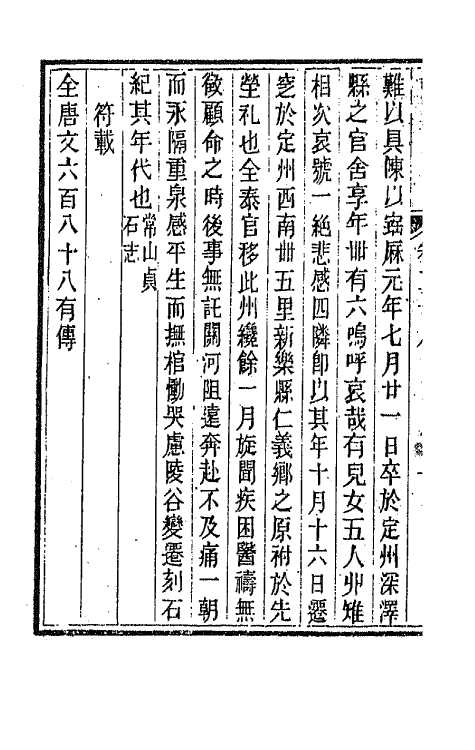 難以具陳以寶厤元年七月廿一日卒於定州深澤
縣之官舍享年卌有六嗚呼哀哉有兒女五人丱雉
相次哀號一絶悲感四隣卽以其年十月十六日遷
窆於定州西南卌五里新樂縣仁義鄉之原祔於先
塋礼也全泰官移此州纔餘一月旋聞疾困醫禱無
徵顧命之時後事無託關河阻遠奔赴不及痛一朝
而永隔重泉感平生而撫棺慟哭慮陵谷變遷刻石
紀其年代也常山貞石志
符載
全唐文六百八十八有傳